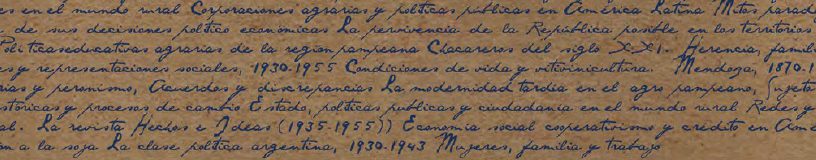 es en el mundo rural Corporaciones agrarias y políticas públicas en América Latina Mitos, parad
de sus decisiones político económicas La pervivencia de la República posible en los territorios
Políticas educativas agrarias de la region pampeana Chacareros del siglo XXI. Herencia, famil
es y representaciones sociales, 1930-1955 Condiciones de vida y vitivinicultura. Mendoza, 1870-1
rias y peronismo, Acuerdos y discrepancias La modernidad tardía en el agro pampeano, Sujeto
stóricas y procesos de cambio Estado, políticas publicas y ciudadanía en el mundo rural Redes y
al. La revista Hechos e Ideas (1935-1955)) Economía social cooperativismo y credito en Amé
ón a la soja La clase política argentina, 1930-1943 Mujeres, familia y trabajo